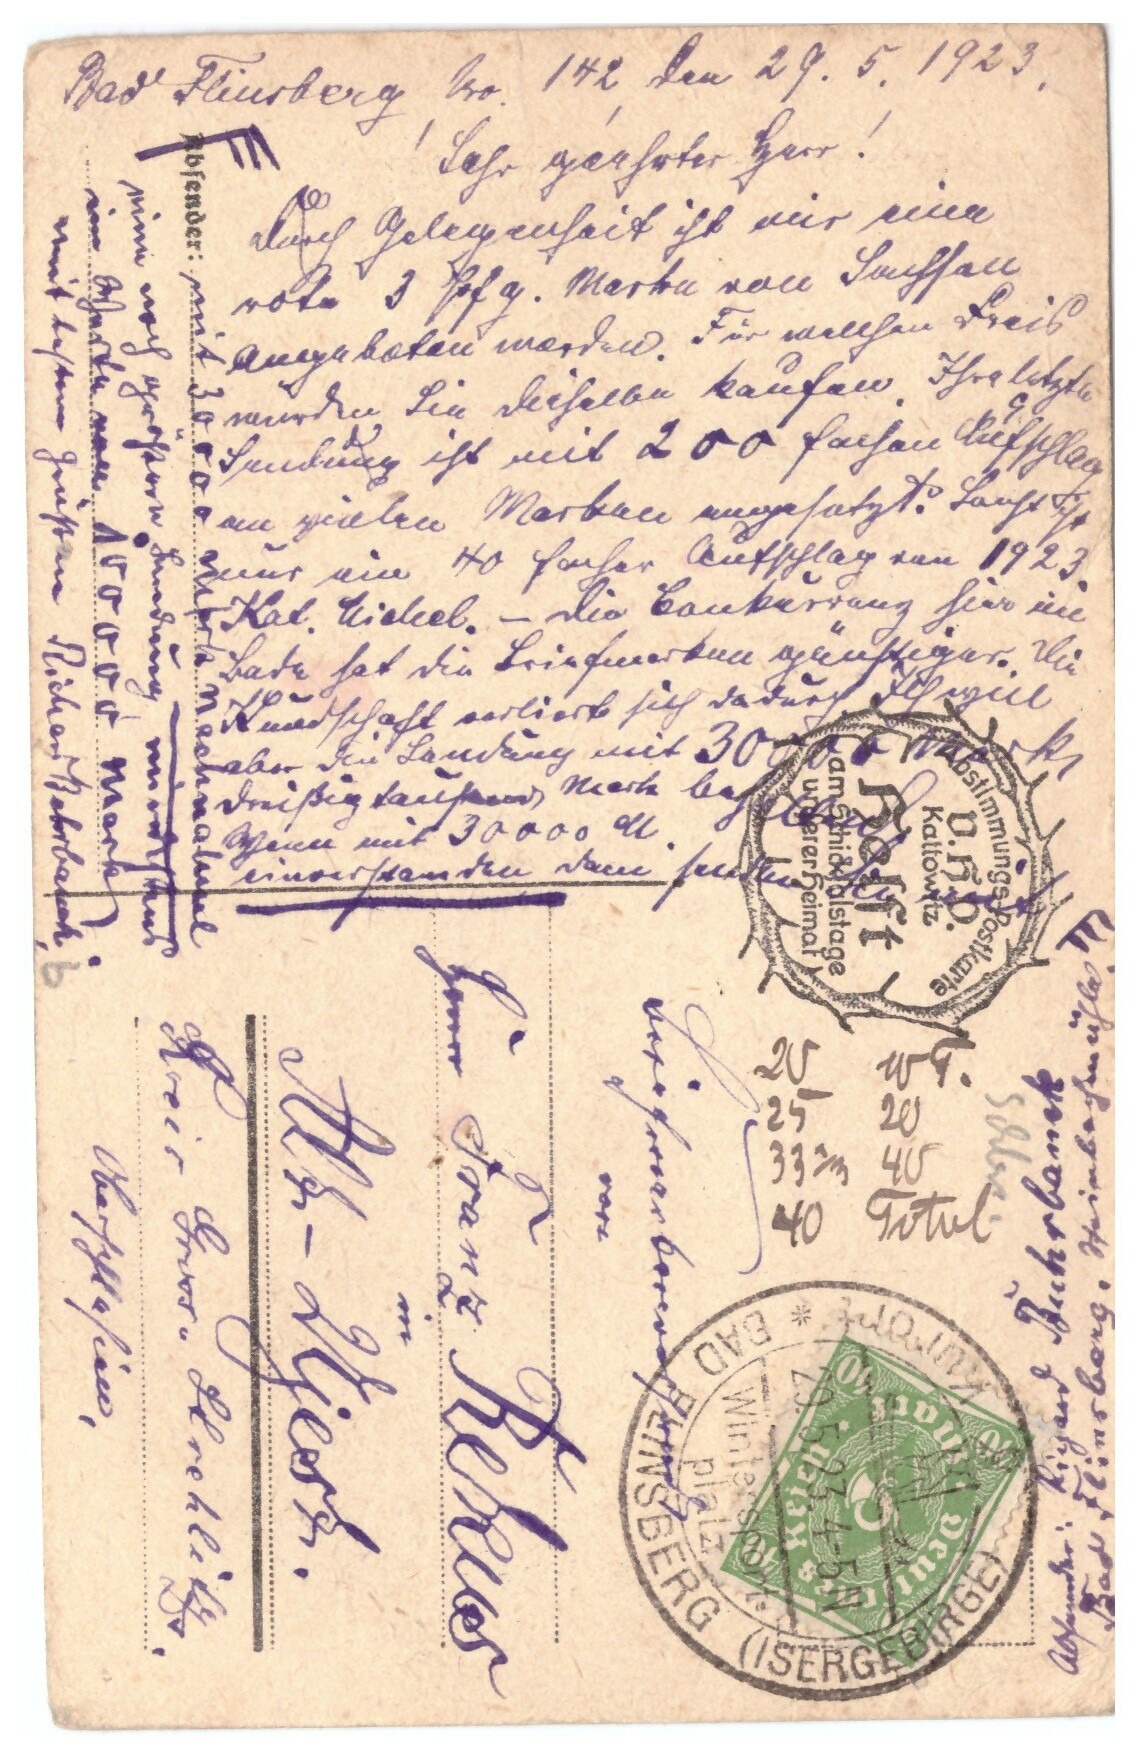 Bad Flinsberg No. 142 den 29. 5. 1923.
! Sehr geehrter Herr !
Durch Gelegenheit ist mir eine
rote 3 Pfg. Marke von Sachsen
angeboten worden. Für welchen Preis
würden Sie dieselbe kaufen. Ihre letzte
Sendung ist mit 200 fachen Aufschlag
an vielen Marken angesetzt. Sonst ist
nur ein 40 facher Aufschlag von 1923.
Kat. Michel. – Die Conkurrenz hier im
Bade hat die Briefmarken günstiger. Die
Kundschaft verliert sich dadurch. Ich will
aber die Sendung mit 30000 Mark,
dreißigtausend Mark
Wenn mit 30000 M.
einverstanden dann senden Sie
Absender:
mit 30000 Mark Nachnahme
eine noch größere Sendung
im Werte von 100000 Mark
mit besten Grüßen Richard Buhrbanck.
Abstimmungs-Postkarte
v.h.o.
Kattowitz
Helft
am Schicksalstage
unserer Heimat
20 10 T.
25 20
33⅓ 40
40 Total
Herrn Franz
in
Alt-
Kreis Gross Strehlitz.
Oberschlesien.
Absender: Richard Buhrbanck
Bad Flinsberg.
Kurort
BAD FLINSBERG (ISERGEBIRGE)
Wintersport-
platz
29.5.23.4-5N
Deutsches Reich
10 Mark 10